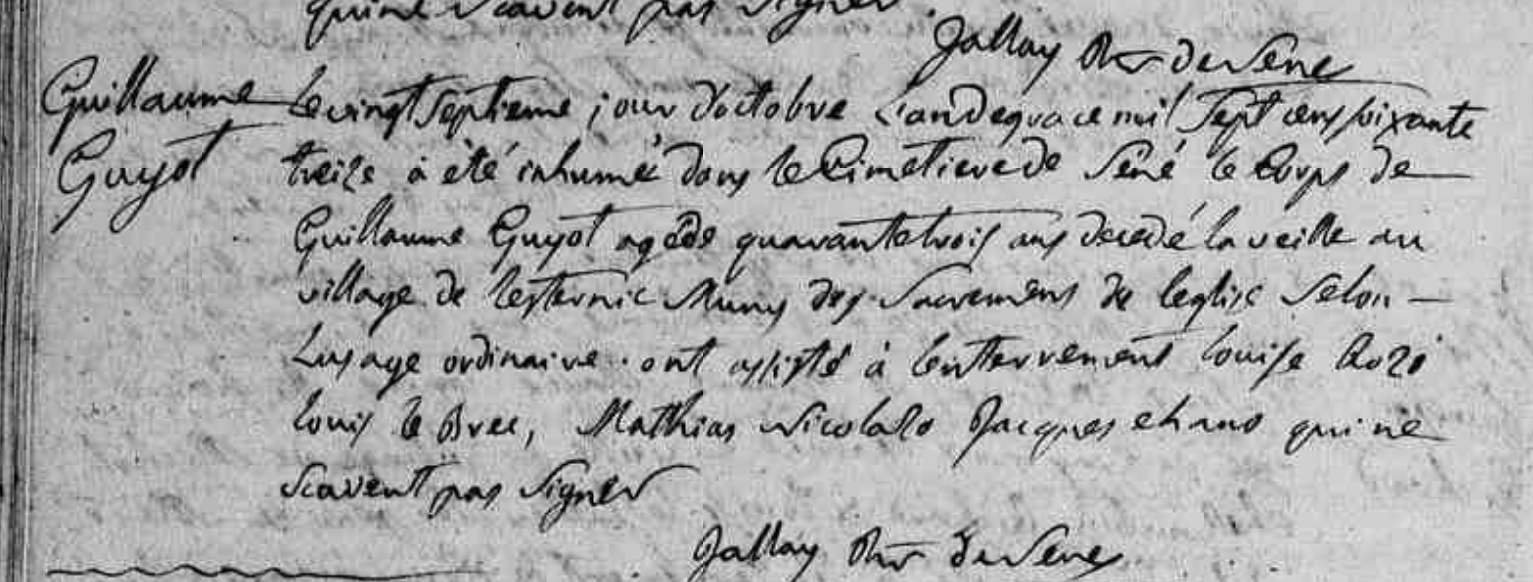 qui ne scavent pas signer.
Jallay Rr de Sené
Guillaume
Guyot
Le vingt septieme jour d'octobre L'an de grace mil sept cens soixante
treize a été inhumé dans le Cimetiere de Séné le Corps de
Guillaume Guyot agé de quarante trois ans decedé la veille au
village de Lesternic Muny des sacremens de leglise selon
Lusage ordinaire. ont assisté à lenterrement Louise
Louis le Brec, Mathias Nicolazo Jacques ehano qui ne
scavent pas signer
Jallay Rr de Sené